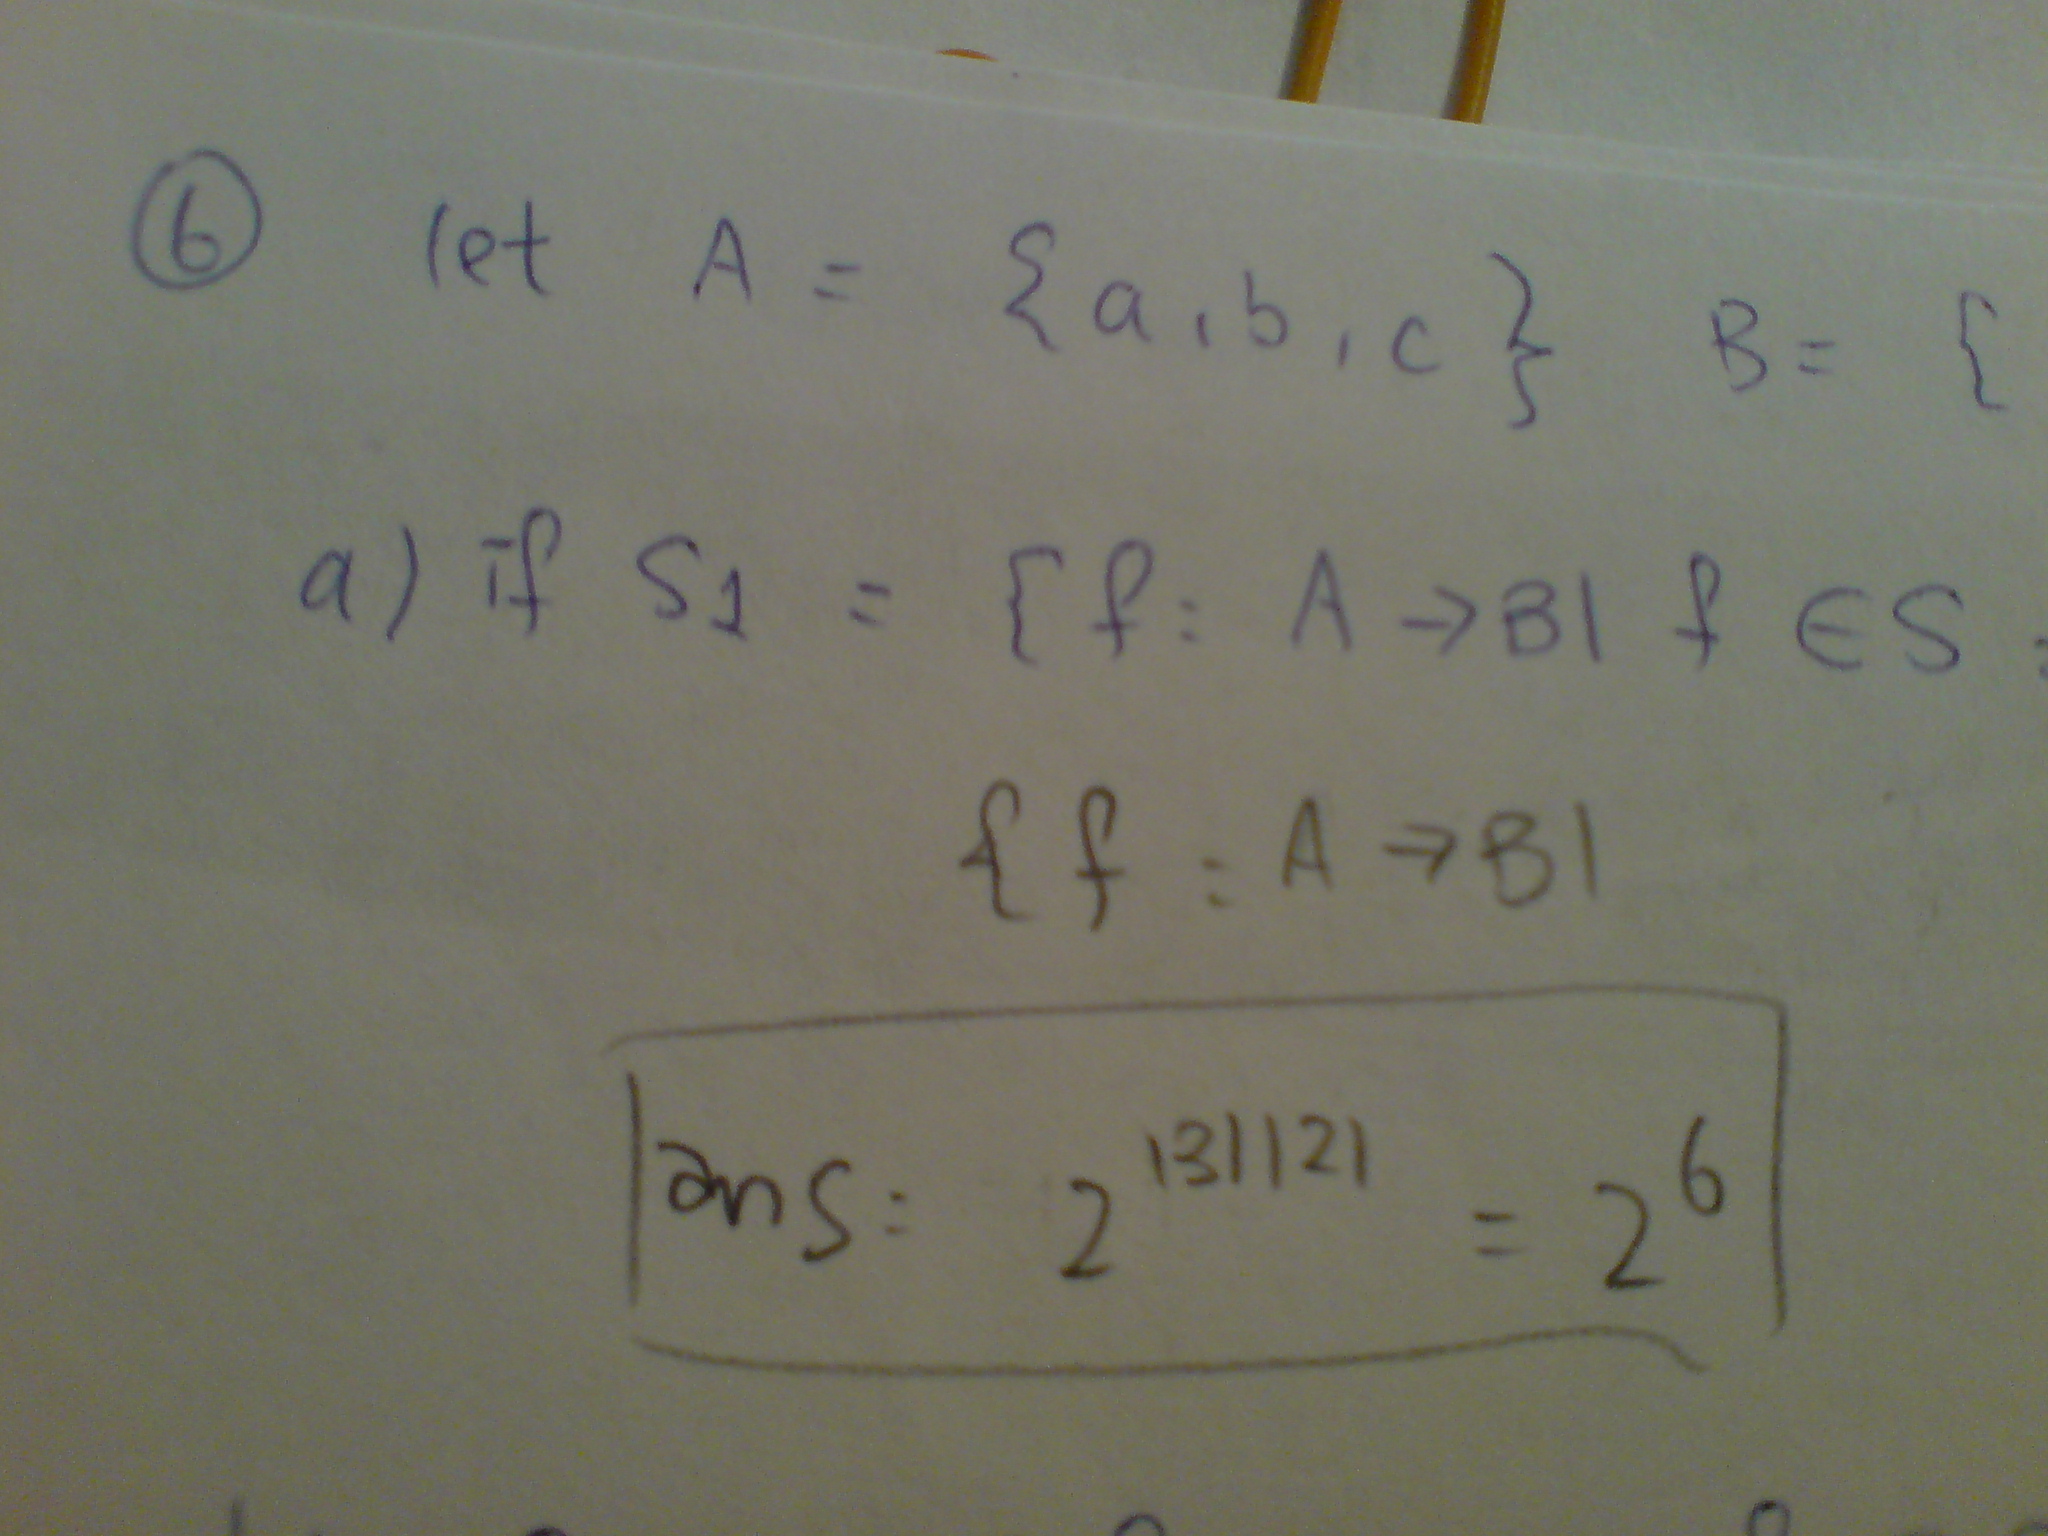 6 let A = {a, b, c} B = {
a) if S1 = {f: A → B| f ∈ S
{f : A → B|
ans: 2^|3||2| = 2^6